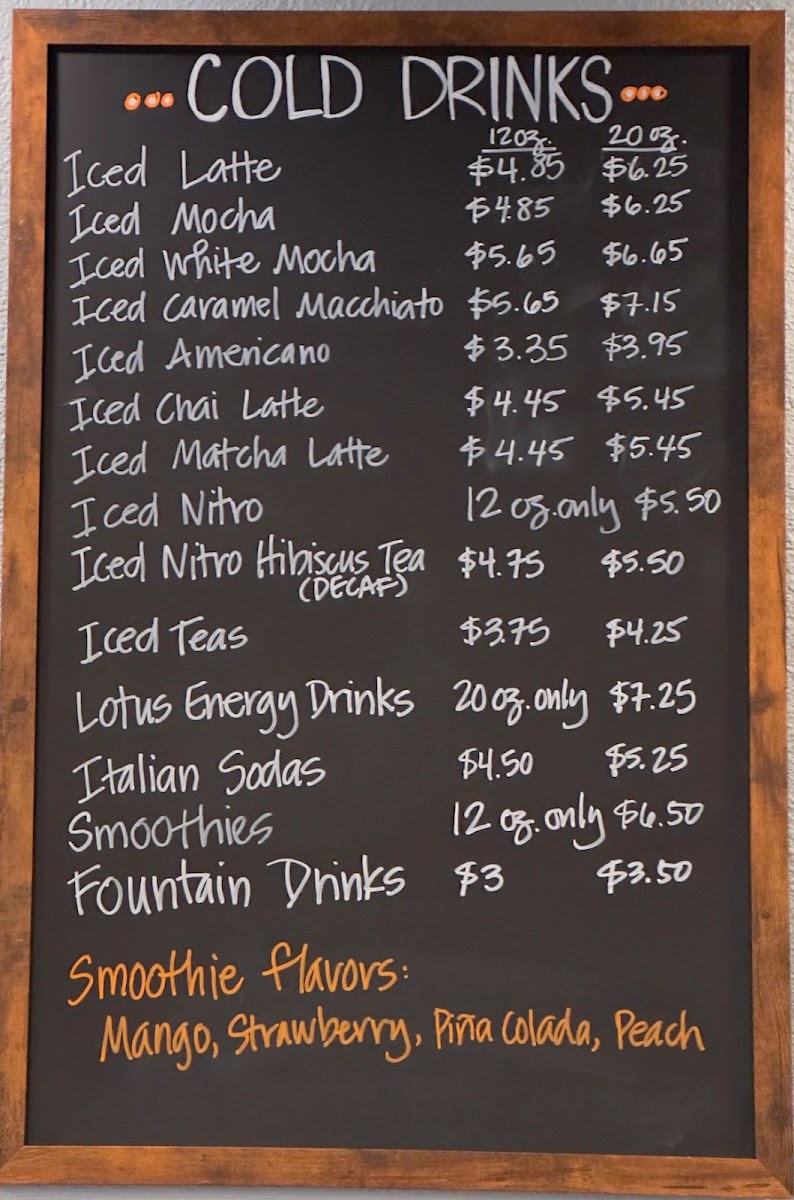 COLD DRINKS
12 oz. 20 oz.
Iced Latte $4.85 $6.25
Iced Mocha $4.85 $6.25
Iced White Mocha $5.65 $6.65
Iced Caramel Macchiato $5.65 $7.15
Iced Americano $3.35 $3.95
Iced Chai Latte $4.45 $5.45
Iced Matcha Latte $4.45 $5.45
Iced Nitro 12 oz. only $5.50
Iced Nitro Hibiscus Tea $4.75 $5.50
(DECAF)
Iced Teas $3.75 $4.25
Lotus Energy Drinks 20 oz. only $7.25
Italian Sodas $4.50 $5.25
Smoothies 12 oz. only $6.50
Fountain Drinks $3 $3.50
Smoothie flavors:
Mango, Strawberry, Piña Colada, Peach